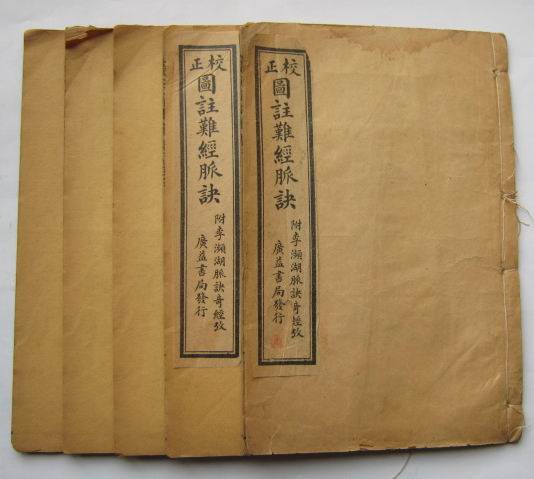 校正
圖註難經脈訣
附李瀕湖脈訣奇經攷
廣益書局發行
校正
圖註難經脈訣
附李瀕湖脈訣奇經攷
廣益書局發行